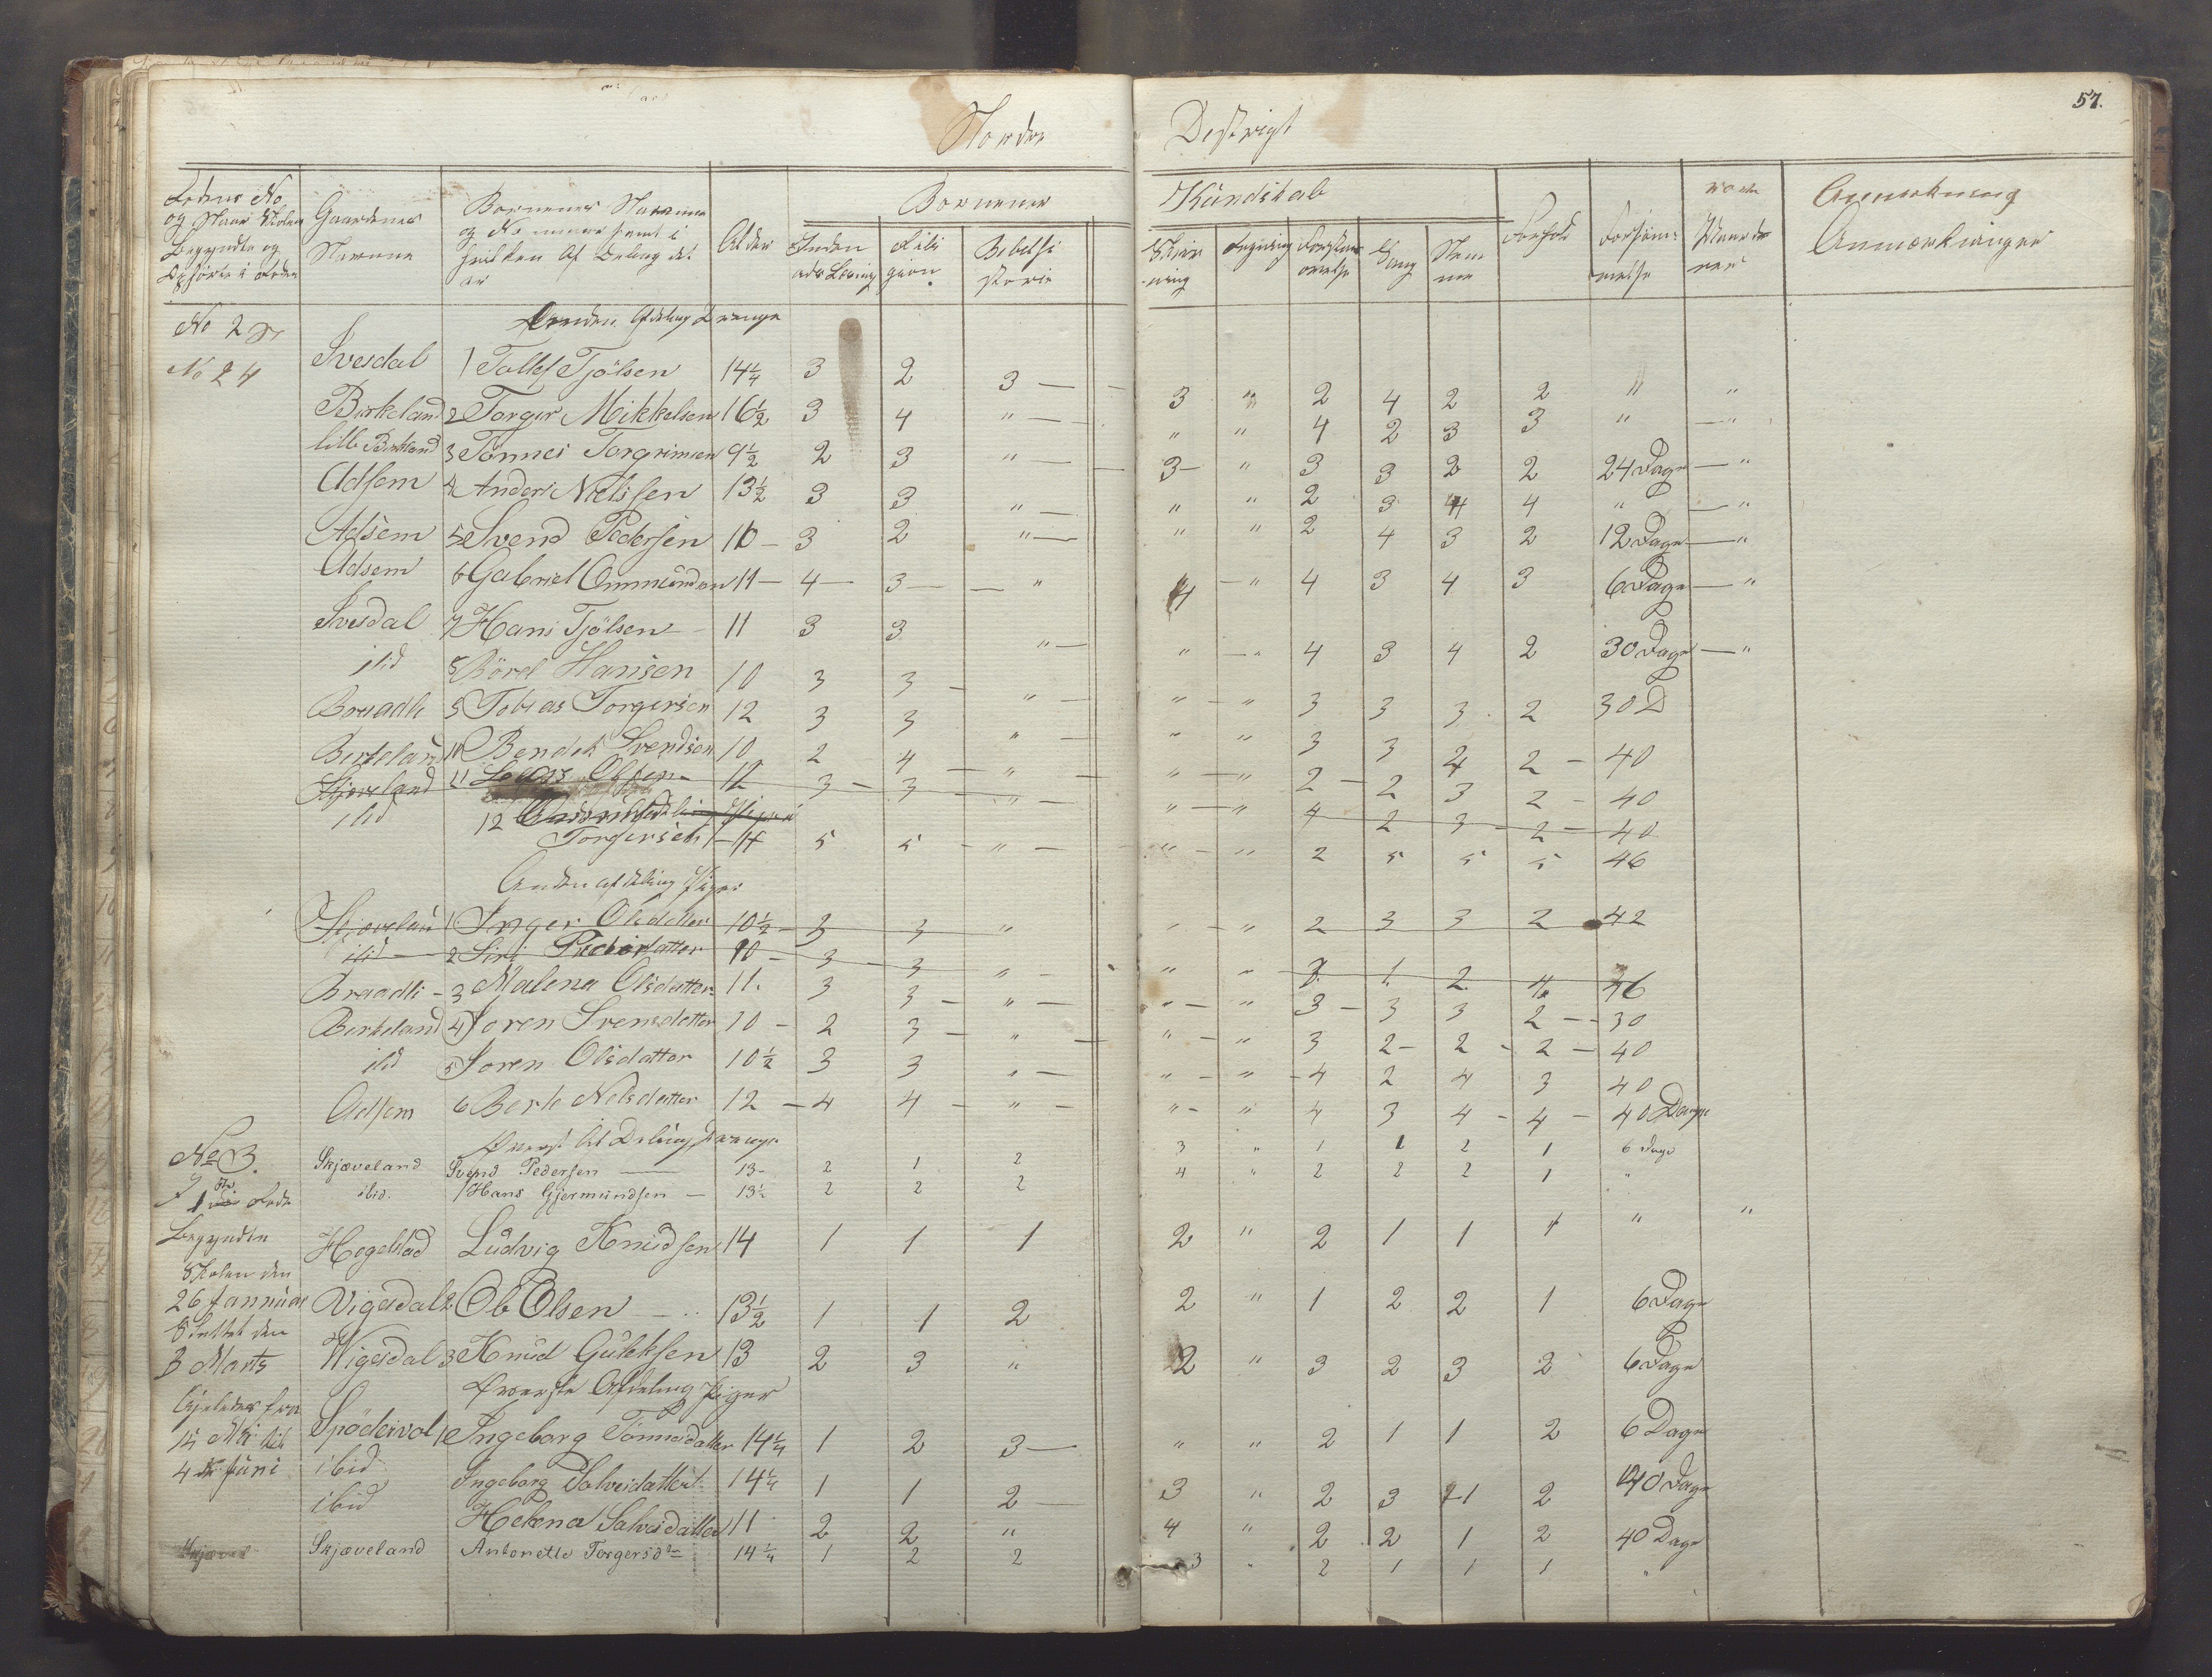 57.
Nordre Destrigt
Rodens No og Naar Skolen Begyndte og Ophörte i Roden
Gaardenes Navne
Bornenes Navnne og Nommere samt i hvilken Af Deling det er
Alder
Bornenes Kundskab
Inden ads Læsing
Reli gion
Bibelhi storie
Skriv ning
Regning
Forstan
Sang
Nem me
Forhold
Forsöm melse
Anmerkning
Anmærkninger
No 2
Anden Afdeling Drenge
No 24 Svesdal 1 Tollef Tjölsen 14¼ 3 2 3 — 3 " 2 4 2 2 " "
Birkeland 2 Torger Mikkelsen 16½ 3 4 " — " " 4 2 3 3 " — "
lille Birkland 3 Tönnes Torgrimsen 9½ 2 3 " — 3 — " 3 3 2 2 24 Dage — "
Adsem 4 Anders Nielssen 13½ 3 3 " — " " 2 3 4 4 " — "
Adsem 5 Svend Pedersen 10 — 3 2 " — " " 2 4 3 2 12 Dage — "
Adsem 6 Gabriel Ommundsen 11 — 4 — 3 — " 4 — " 4 3 4 3 6 Dage — "
Svesdal 7 Hans Tjölsen 11 3 3 " — " — " 4 3 4 2 30 Dage — "
ibid 8 Börel Hansen 10 3 3 — " — " — " 3 3 3 2 30 D
Braadli 9 Tobias Torgersen 12 3 3 " — " " 3 3 4 2 — 40
Birkeland 10 Bendik Svendsen 10 2 4 — " — " — " 2 — 2 3 2 — 40
Skjæveland 11 Olsen 12 3 — 3 — " — " — " 4 2 3 2 — 40
ibid 12
Torgersen 14 5 5 — " — " — " 2 5 5 5 46
Anden afdeling Piger
Skjævelan 1 Inger Olsdatter 10½ — 3 3 " " — " 2 3 3 2 42
ibid 2 Siri Pedersdatter 10 — 3 — 3 " — " " 3 1 2 4 46
Braadli — 3 Malena Olsdatter 11. 3 3 — " — " — " 3 — 3 3 2 — 30
Birkeland 4 Soren Svensdatter 10 — 2 3 — " — " — " 3 2 — 2 — 2 — 40
ibid 5 Soren Olsdatter 10½ 3 3 " — " — " — 4 2 4 3 40
Adsem 6 Berte Nelsdatter 12 — 4 4 — " — " — " 4 3 4 — 4 — 40 Dage
Överst Af Deling Drenge
No 3. Skjæveland Svend Pedersen — 13 — 2 1 2 3 " 1 1 2 1 6 Dage
I 1ste Rode ibid. Hans Gjermundsen — 13½ 2 2 2 4 " 2 2 2 1 "
Begyndte Hogelstad Ludvig Knudsen 14 1 1 1 2 " 2 1 1 1 " "
Skolen den
26 Januar Vigesdal 2 Ole Olsen — 13½ 1 1 2 2 " 1 2 2 1 6 Dage
Sluttet den
3 Marts Wigesdal 3 Knud Guleksen 13 2 3 " 2 " 3 2 3 2 6 Dage
Överste Afdeling Piger
Spödervol 1 Ingeborg Tönnesdatter 14¼ 1 2 3 — " " 2 1 1 2 6 Dage
15 Mai til
4 Juni ibid Ingeborg Salvesdatter 14¼ 1 1 2 — 3 " 2 3 1 2 40 Dage
ibid Helena Salvesdatter 11 2 2 " 4 " 2 2 1 2 40 Dage
Skjæveland Antonette Torgersdtr 14¼ 1 2 2 3 " 2 1 1 1 "